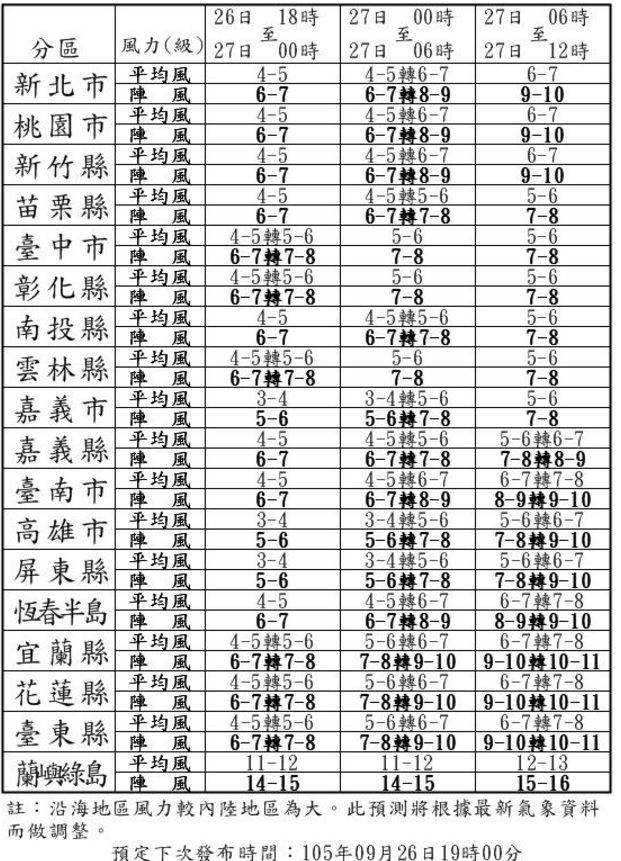 分區 風力(級) 26日 18時 至 27日 00時 27日 00時 至 27日 06時 27日 06時 至 27日 12時
新北市 平均風 4-5 4-5轉6-7 6-7
陣 風 6-7 6-7轉8-9 9-10
桃園市 平均風 4-5 4-5轉6-7 6-7
陣 風 6-7 6-7轉8-9 9-10
新竹縣 平均風 4-5 4-5轉6-7 6-7
陣 風 6-7 6-7轉8-9 9-10
苗栗縣 平均風 4-5 4-5轉5-6 5-6
陣 風 6-7 6-7轉7-8 7-8
臺中市 平均風 4-5轉5-6 5-6 5-6
陣 風 6-7轉7-8 7-8 7-8
彰化縣 平均風 4-5轉5-6 5-6 5-6
陣 風 6-7轉7-8 7-8 7-8
南投縣 平均風 4-5 4-5轉5-6 5-6
陣 風 6-7 6-7轉7-8 7-8
雲林縣 平均風 4-5轉5-6 5-6 5-6
陣 風 6-7轉7-8 7-8 7-8
嘉義市 平均風 3-4 3-4轉5-6 5-6
陣 風 5-6 5-6轉7-8 7-8
嘉義縣 平均風 4-5 4-5轉5-6 5-6轉6-7
陣 風 6-7 6-7轉7-8 7-8轉8-9
臺南市 平均風 4-5 4-5轉6-7 6-7轉7-8
陣 風 6-7 6-7轉8-9 8-9轉9-10
高雄市 平均風 3-4 3-4轉5-6 5-6轉6-7
陣 風 5-6 5-6轉7-8 7-8轉9-10
屏東縣 平均風 3-4 3-4轉5-6 5-6轉6-7
陣 風 5-6 5-6轉7-8 7-8轉9-10
恆春半島 平均風 4-5 4-5轉6-7 6-7轉7-8
陣 風 6-7 6-7轉8-9 8-9轉9-10
宜蘭縣 平均風 4-5轉5-6 5-6轉6-7 6-7轉7-8
陣 風 6-7轉7-8 7-8轉9-10 9-10轉10-11
花蓮縣 平均風 4-5轉5-6 5-6轉6-7 6-7轉7-8
陣 風 6-7轉7-8 7-8轉9-10 9-10轉10-11
臺東縣 平均風 4-5轉5-6 5-6轉6-7 6-7轉7-8
陣 風 6-7轉7-8 7-8轉9-10 9-10轉10-11
蘭嶼綠島 平均風 11-12 11-12 12-13
陣 風 14-15 14-15 15-16
註：沿海地區風力較內陸地區為大。此預測將根據最新氣象資料
而做調整。
預定下次發布時間：105年09月26日19時00分